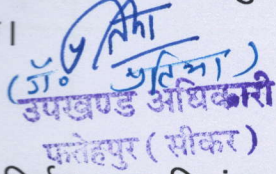 ।
(डॉ. प्रतिभा)
उपखण्ड अधिकारी
फतेहपुर (सीकर)